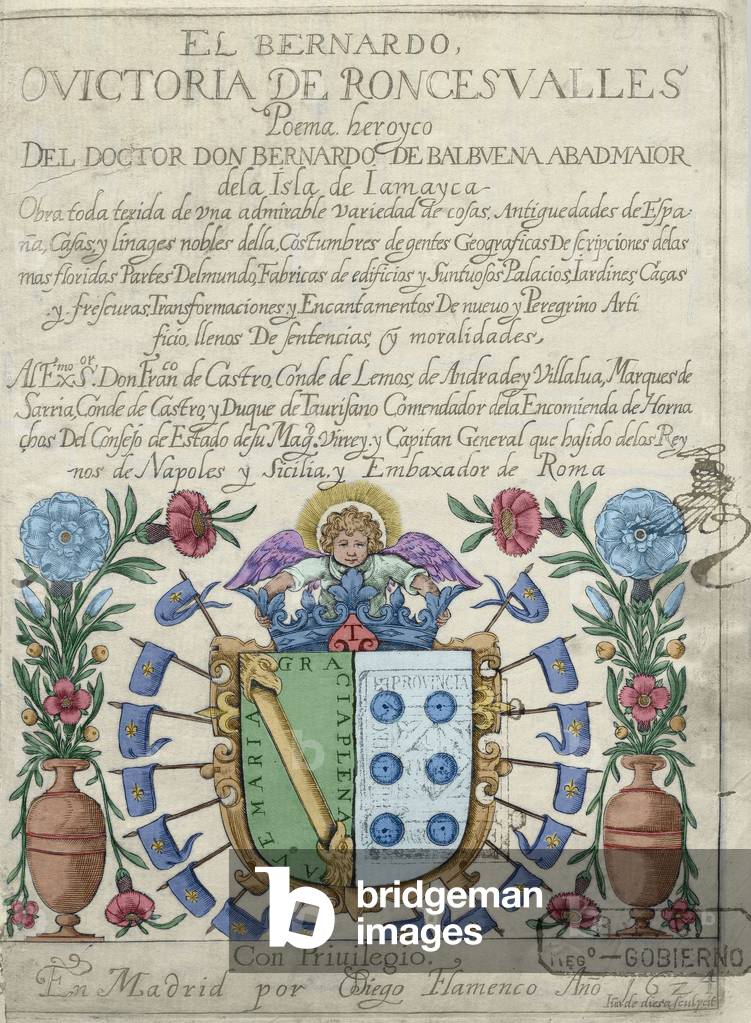 EL BERNARDO,
O VICTORIA DE RONCESVALLES
Poema heroyco
DEL DOCTOR DON BERNARDO DE BALBVENA ABAD MAIOR
de la Isla de Iamayca
Obra toda texida de vna admirable variedad de cosas, Antiguedades de Espa-
ña, Casas, y linages nobles della, Costumbres de gentes Geograficas Descripciones delas
mas floridas Partes Del mundo, Fabricas de edificios y Suntuosos Palacios, Iardines, Caças
y frescuras, Transformaciones, y Encantamentos De nueuo y Peregrino Arti
ficio, llenos De sentencias, y moralidades,
Al Exmo Sor. Don Franco de Castro, Conde de Lemos, de Andrade, y Villalua, Marques de
Sarria, Conde de Castro, y Duque de Taurisano Comendador dela Encomienda de Horna
chos Del Consejo de Estado de su Mago. Virrey, y Capitan General que ha sido delos Rey
nos de Napoles y Sicilia, y Embaxador de Roma
T
AVE MARIA GRACIA PLENA
PROVINCIA
bridgeman
images
REGº-GOBIERNO
Con Priuilegio.
En Madrid por Diego Flamenco Año 1624
Iuº de diesa sculpcit